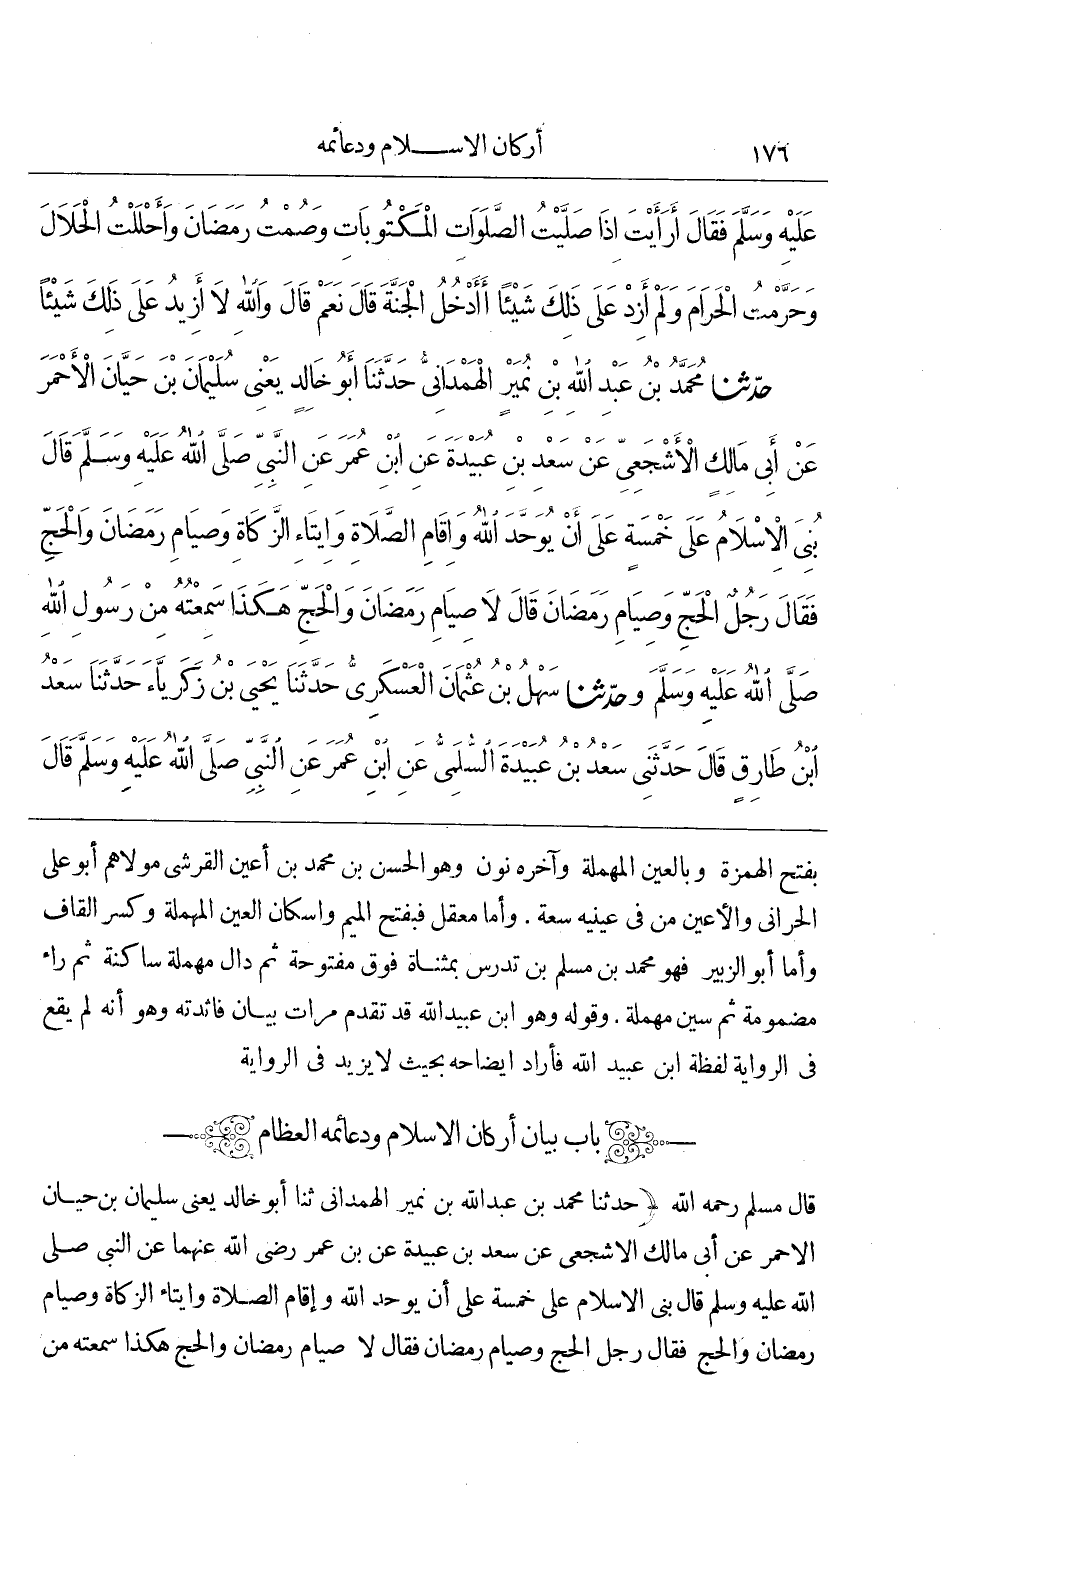 ١٧٦ أركان الاسلام ودعائمه
عَلَيْهِ وَسَلَّمَ فَقَالَ أَرَأَيْتَ إِذَا صَلَّيْتُ الصَّلَوَاتِ الْمَكْتُوبَاتِ وَصُمْتُ رَمَضَانَ وَأَحْلَلْتُ الْحَلَالَ
وَحَرَّمْتُ الْحَرَامَ وَلَمْ أَزِدْ عَلَى ذَلِكَ شَيْئًا أَأَدْخُلُ الْجَنَّةَ قَالَ نَعَمْ قَالَ وَاللهِ لَا أَزِيدُ عَلَى ذَلِكَ شَيْئًا
حدّثنا مُحَمَّدُ بْنُ عَبْدِ اللهِ بْنِ نُمَيْرٍ الْهَمْدَانِىُّ حَدَّثَنَا أَبُو خَالِدٍ يَعْنِى سُلَيْمَانَ بْنَ حَيَّانَ الْأَحْمَرَ
عَنْ أَبِى مَالِكٍ الْأَشْجَعِىِّ عَنْ سَعْدِ بْنِ عُبَيْدَةَ عَنِ ابْنِ عُمَرَ عَنِ النَّبِىِّ صَلَّى اللهُ عَلَيْهِ وَسَلَّمَ قَالَ
بُنِىَ الْإِسْلَامُ عَلَى خَمْسَةٍ عَلَى أَنْ يُوَحَّدَ اللهُ وَإِقَامِ الصَّلَاةِ وَإِيتَاءِ الزَّكَاةِ وَصِيَامِ رَمَضَانَ وَالْحَجِّ
فَقَالَ رَجُلٌ الْحَجِّ وَصِيَامِ رَمَضَانَ قَالَ لَا صِيَامِ رَمَضَانَ وَالْحَجِّ هَكَذَا سَمِعْتُهُ مِنْ رَسُولِ اللهِ
صَلَّى اللهُ عَلَيْهِ وَسَلَّمَ وحدّثنا سَهْلُ بْنُ عُثْمَانَ الْعَسْكَرِىُّ حَدَّثَنَا يَحْيَى بْنُ زَكَرِيَّاءَ حَدَّثَنَا سَعْدُ
ابْنُ طَارِقٍ قَالَ حَدَّثَنِى سَعْدُ بْنُ عُبَيْدَةَ السُّلَمِىُّ عَنِ ابْنِ عُمَرَ عَنِ النَّبِىِّ صَلَّى اللهُ عَلَيْهِ وَسَلَّمَ قَالَ
بفتح الهمزة وبالعين المهملة وآخره نون وهو الحسن بن محمد بن أعين القرشى مولاهم أبو على
الحرانى والأعين من فى عينيه سعة . وأما معقل فبفتح الميم واسكان العين المهملة وكسر القاف
وأما أبو الزبير فهو محمد بن مسلم بن تدرس بمثناة فوق مفتوحة ثم دال مهملة ساكنة ثم راء
مضمومة ثم سين مهملة . وقوله وهو ابن عبيدالله قد تقدم مرات بيان فائدته وهو أنه لم يقع
فى الرواية لفظة ابن عبيد الله فأراد ايضاحه بحيث لا يزيد فى الرواية
باب بيان أركان الاسلام ودعائمه العظام
قال مسلم رحمه الله ﴿ حدثنا محمد بن عبدالله بن نمير الهمدانى ثنا أبو خالد يعنى سليمان بن حيان
الاحمر عن أبى مالك الاشجعى عن سعد بن عبيدة عن بن عمر رضى الله عنهما عن النبى صلى
الله عليه وسلم قال بنى الاسلام على خمسة على أن يوحد الله وإقام الصلاة وايتاء الزكاة وصيام
رمضان والحج فقال رجل الحج وصيام رمضان فقال لا صيام رمضان والحج هكذا سمعته من